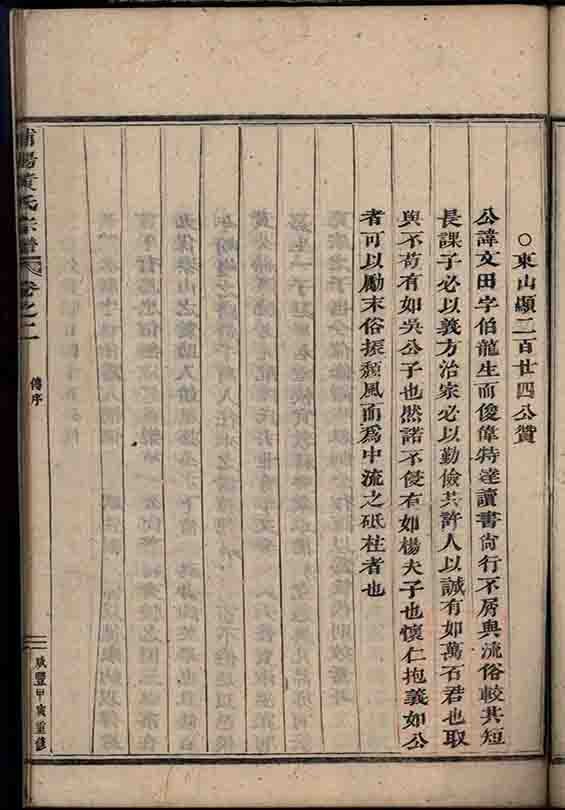 ○東山顯三百廿四公贊
公諱文田字伯龍生而俊偉特達讀書尚行不屑與流俗較其短
長課子必以義方治家必以勤儉其許人以誠有如萬石君也取
與不苟有如吳公子也然諾不侵有如楊夫子也懷仁抱義如公
者可以勵末俗振頹風而為中流之砥柱者也
浦陽黃氏宗譜 卷之二
傳序
咸豐甲寅重修